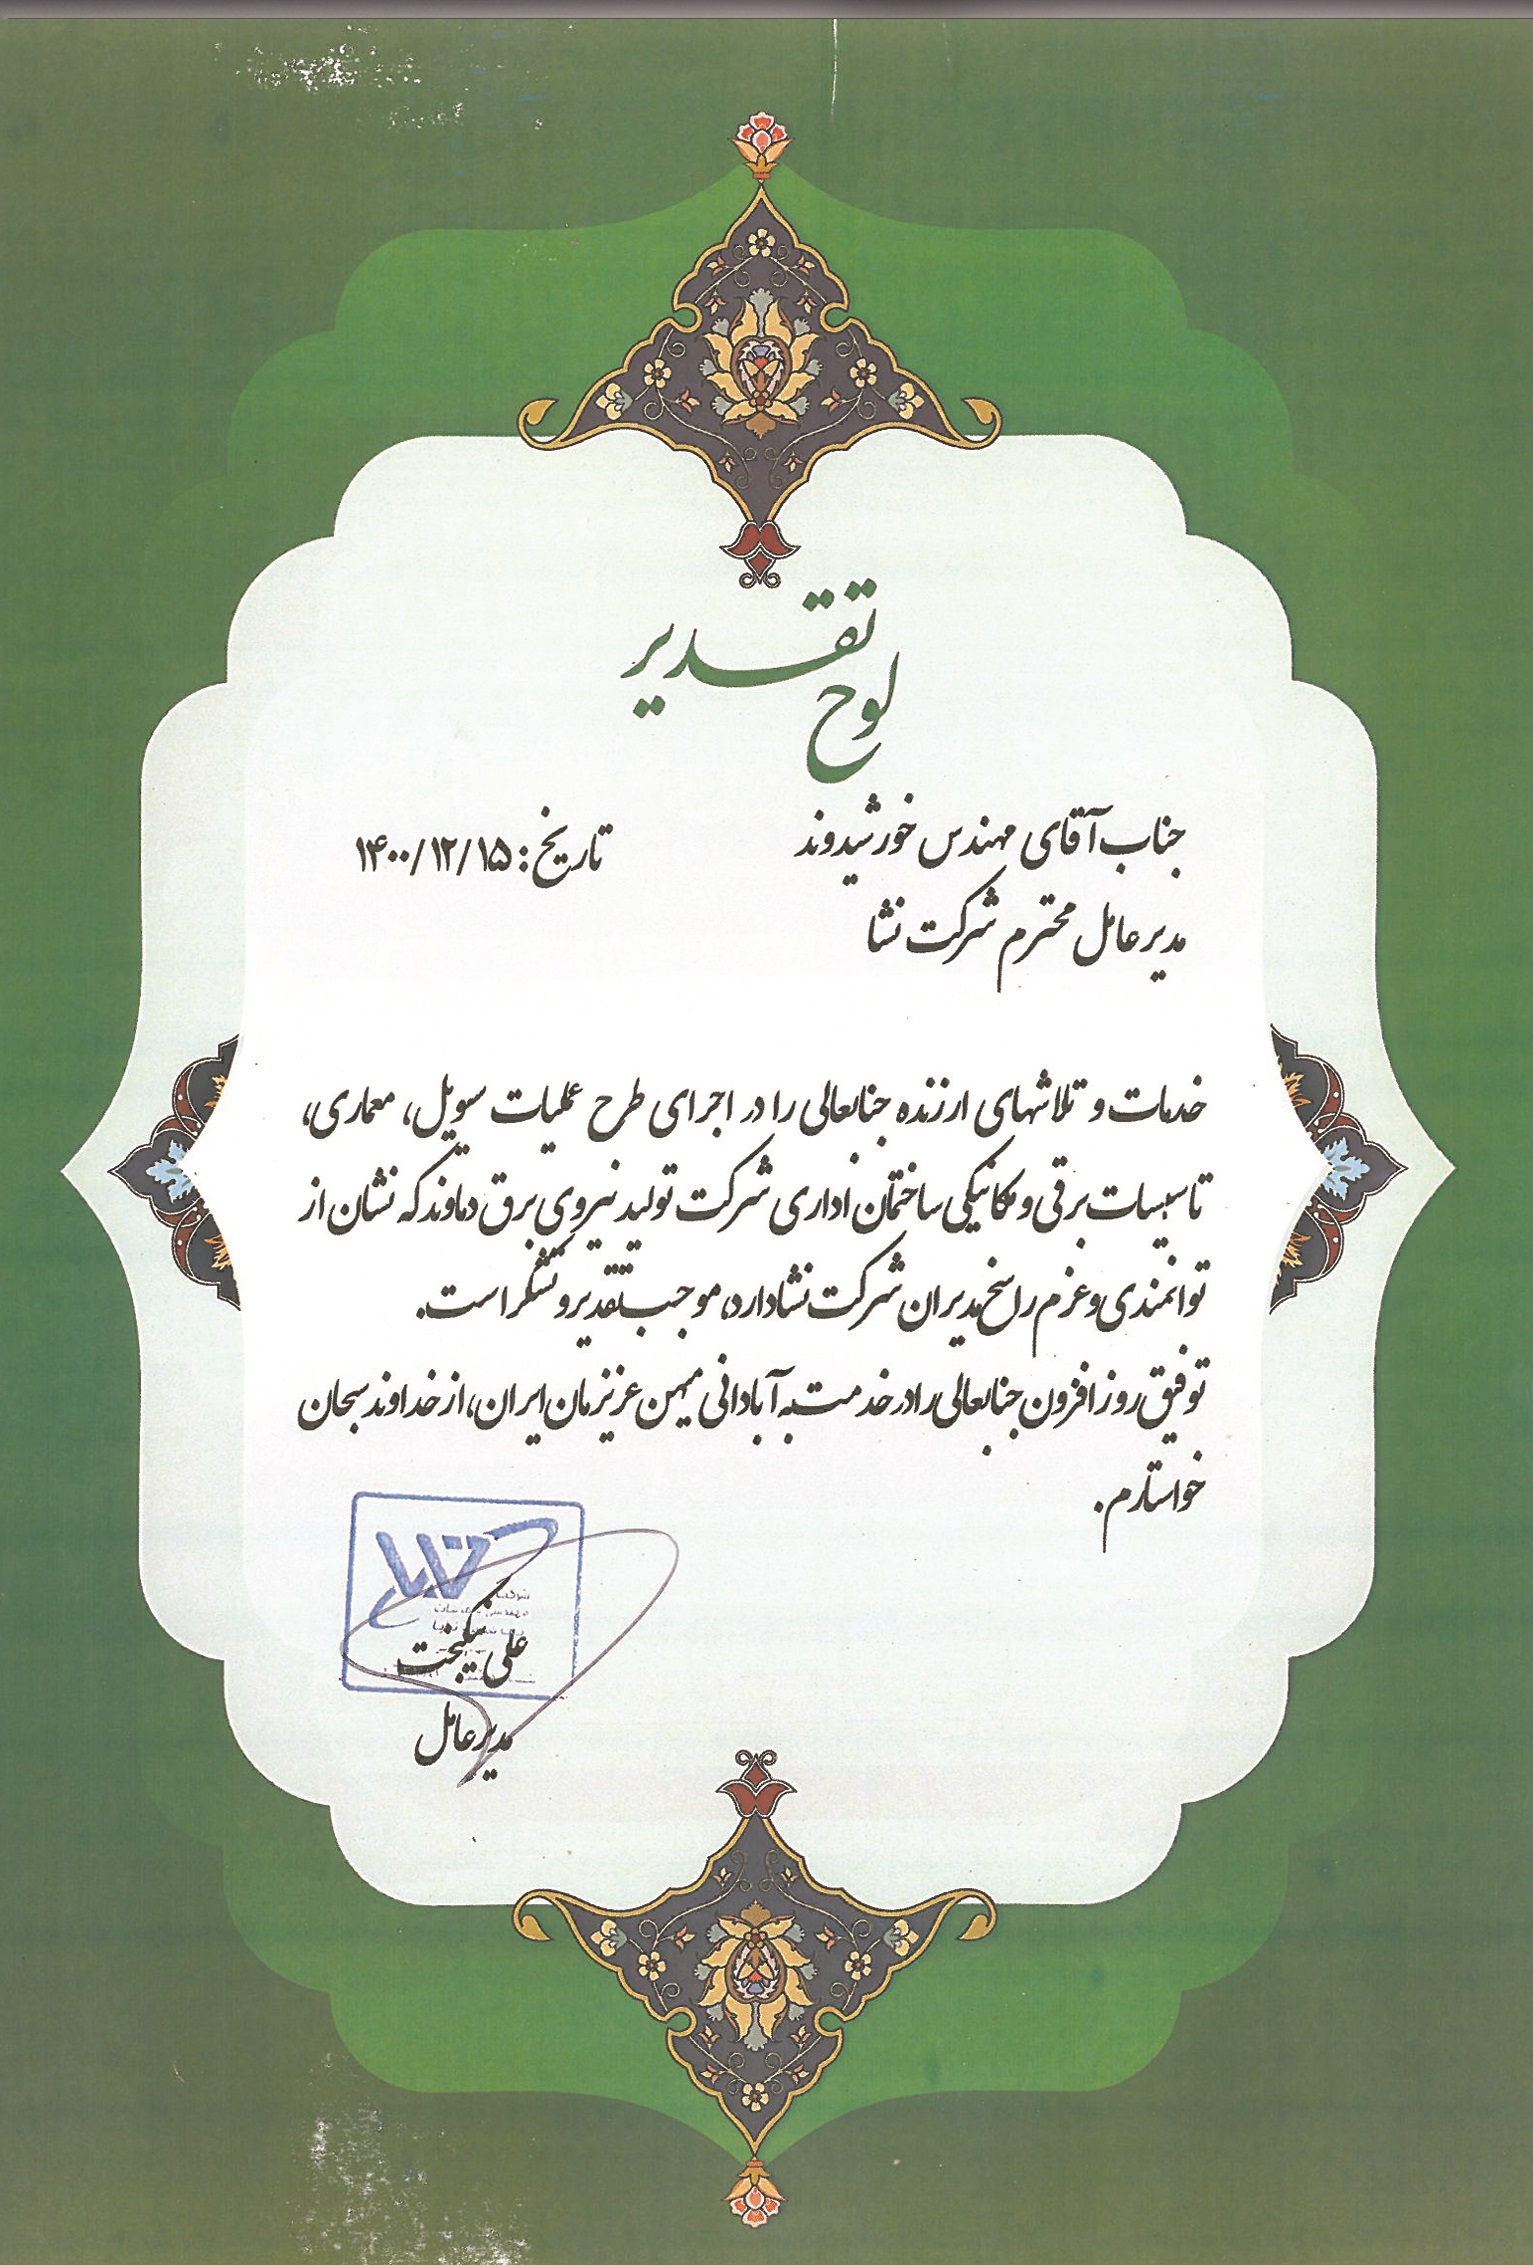 لوح تقدیر
جناب آقای مهندس خورشیدوند
تاریخ: ۱۴۰۰/۱۲/۱۵
مدیرعامل محترم شرکت نشا
خدمات و تلاشهای ارزنده جنابعالی را در اجرای طرح عملیات سویل، معماری،
تاسیسات برقی و مکانیکی ساختمان اداری شرکت تولید نیروی برق دماوند که نشان از
توانمندی و عزم راسخ مدیران شرکت نشا دارد، موجب تقدیر و تشکر است.
توفیق روز افزون جنابعالی را در خدمت به آبادانی میهن عزیزمان ایران، از خداوند سبحان
خواستارم.
شرکت
علی نیکبخت
مدیرعامل